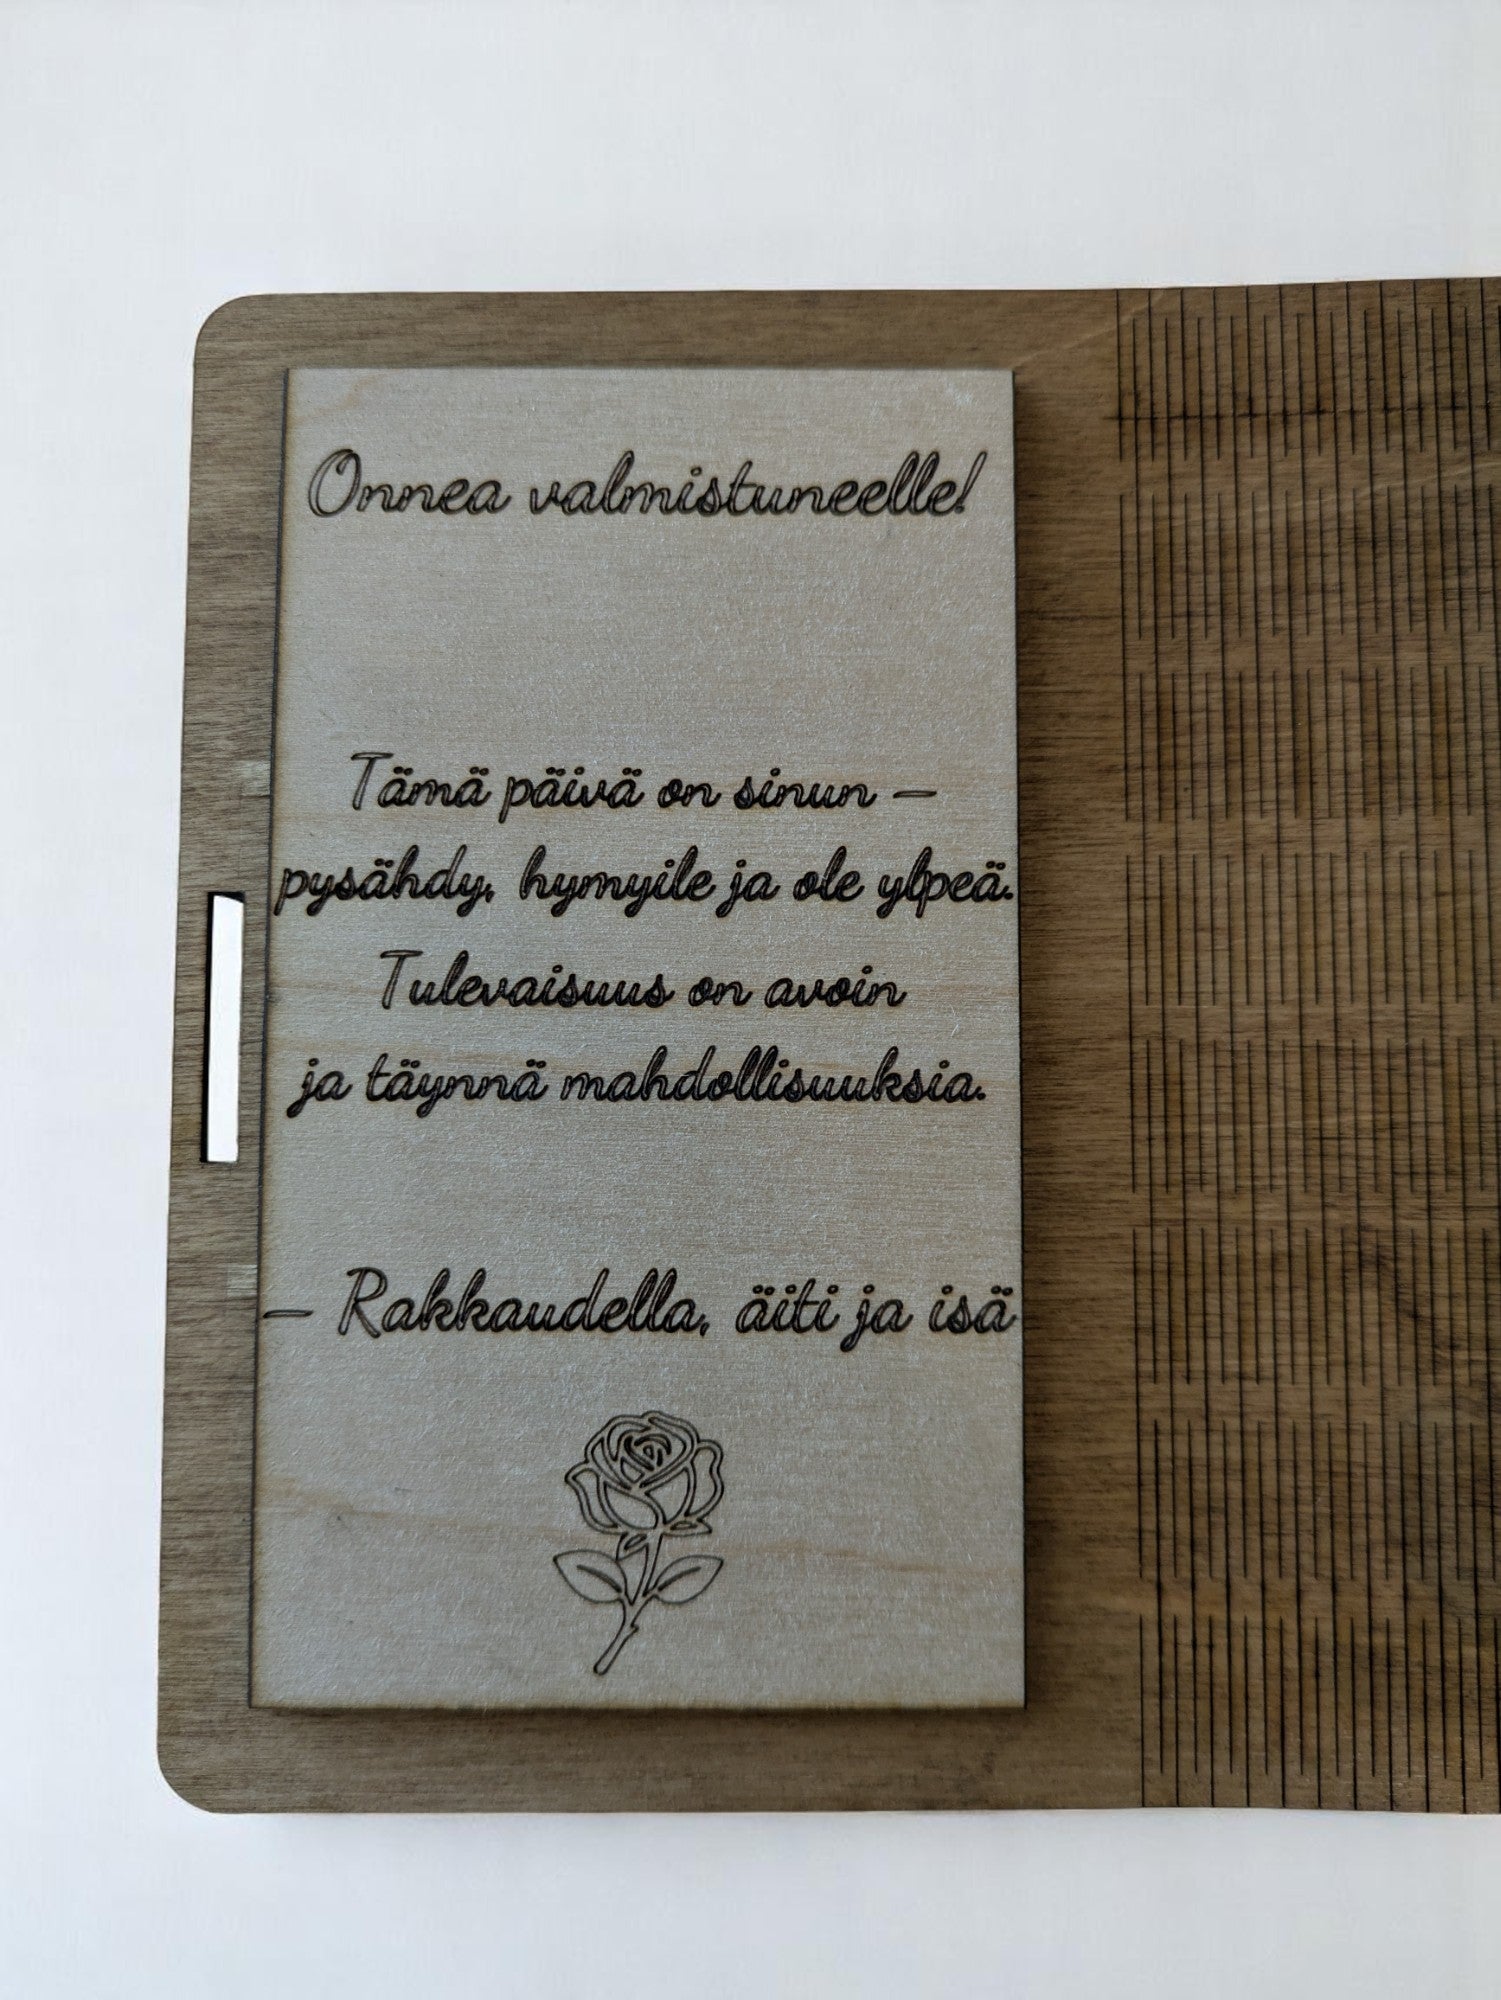 Onnea valmistuneelle!
Tämä päivä on sinun –
pysähdy, hymyile ja ole ylpeä.
Tulevaisuus on avoin
ja täynnä mahdollisuuksia.
– Rakkaudella, äiti ja isä